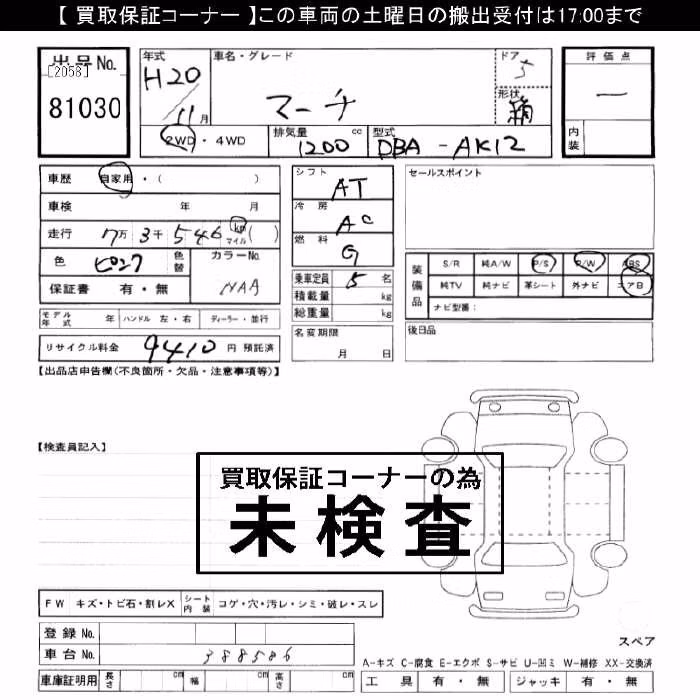 【 買取保証コーナー 】この車両の土曜日の搬出受付は17:00まで
出品No.
[2058]
81030
年式
H20/11月
車名・グレード
マーチ
ドア
5
形状
箱
評価点
―
内装
2WD・4WD
排気量
1200 cc
型式
DBA-AK12
車歴 自家用・( )
車検 年 月
走行 7万3千546 km マイル ( )
色 ピンク 色替
カラーNo.
NAA
保証書 有・無
シフト
AT
冷房
AC
燃料
G
乗車定員 5 名
積載量 kg
総重量 kg
セールスポイント
装備品
S/R 純A/W P/S P/W ABS
純TV 純ナビ 革シート 外ナビ エアB
ナビ型番:
モデル年式 年 ハンドル 左・右 ディーラー・並行
リサイクル料金 9410 円 預託済
名変期限
月 日
後日品
【出品店申告欄(不良箇所・欠品・注意事項等)】
【検査員記入】
買取保証コーナーの為
未検査
FW キズ・トビ石・割レX
シート内装 コゲ・穴・汚レ・シミ・破レ・スレ
登録No.
車台No. 388586
車庫証明用 長さ cm 幅 cm 高さ cm
スペア
A-キズ C-腐食 E-エクボ S-サビ U-凹ミ W-補修 XX-交換済
工具 有・無 ジャッキ 有・無